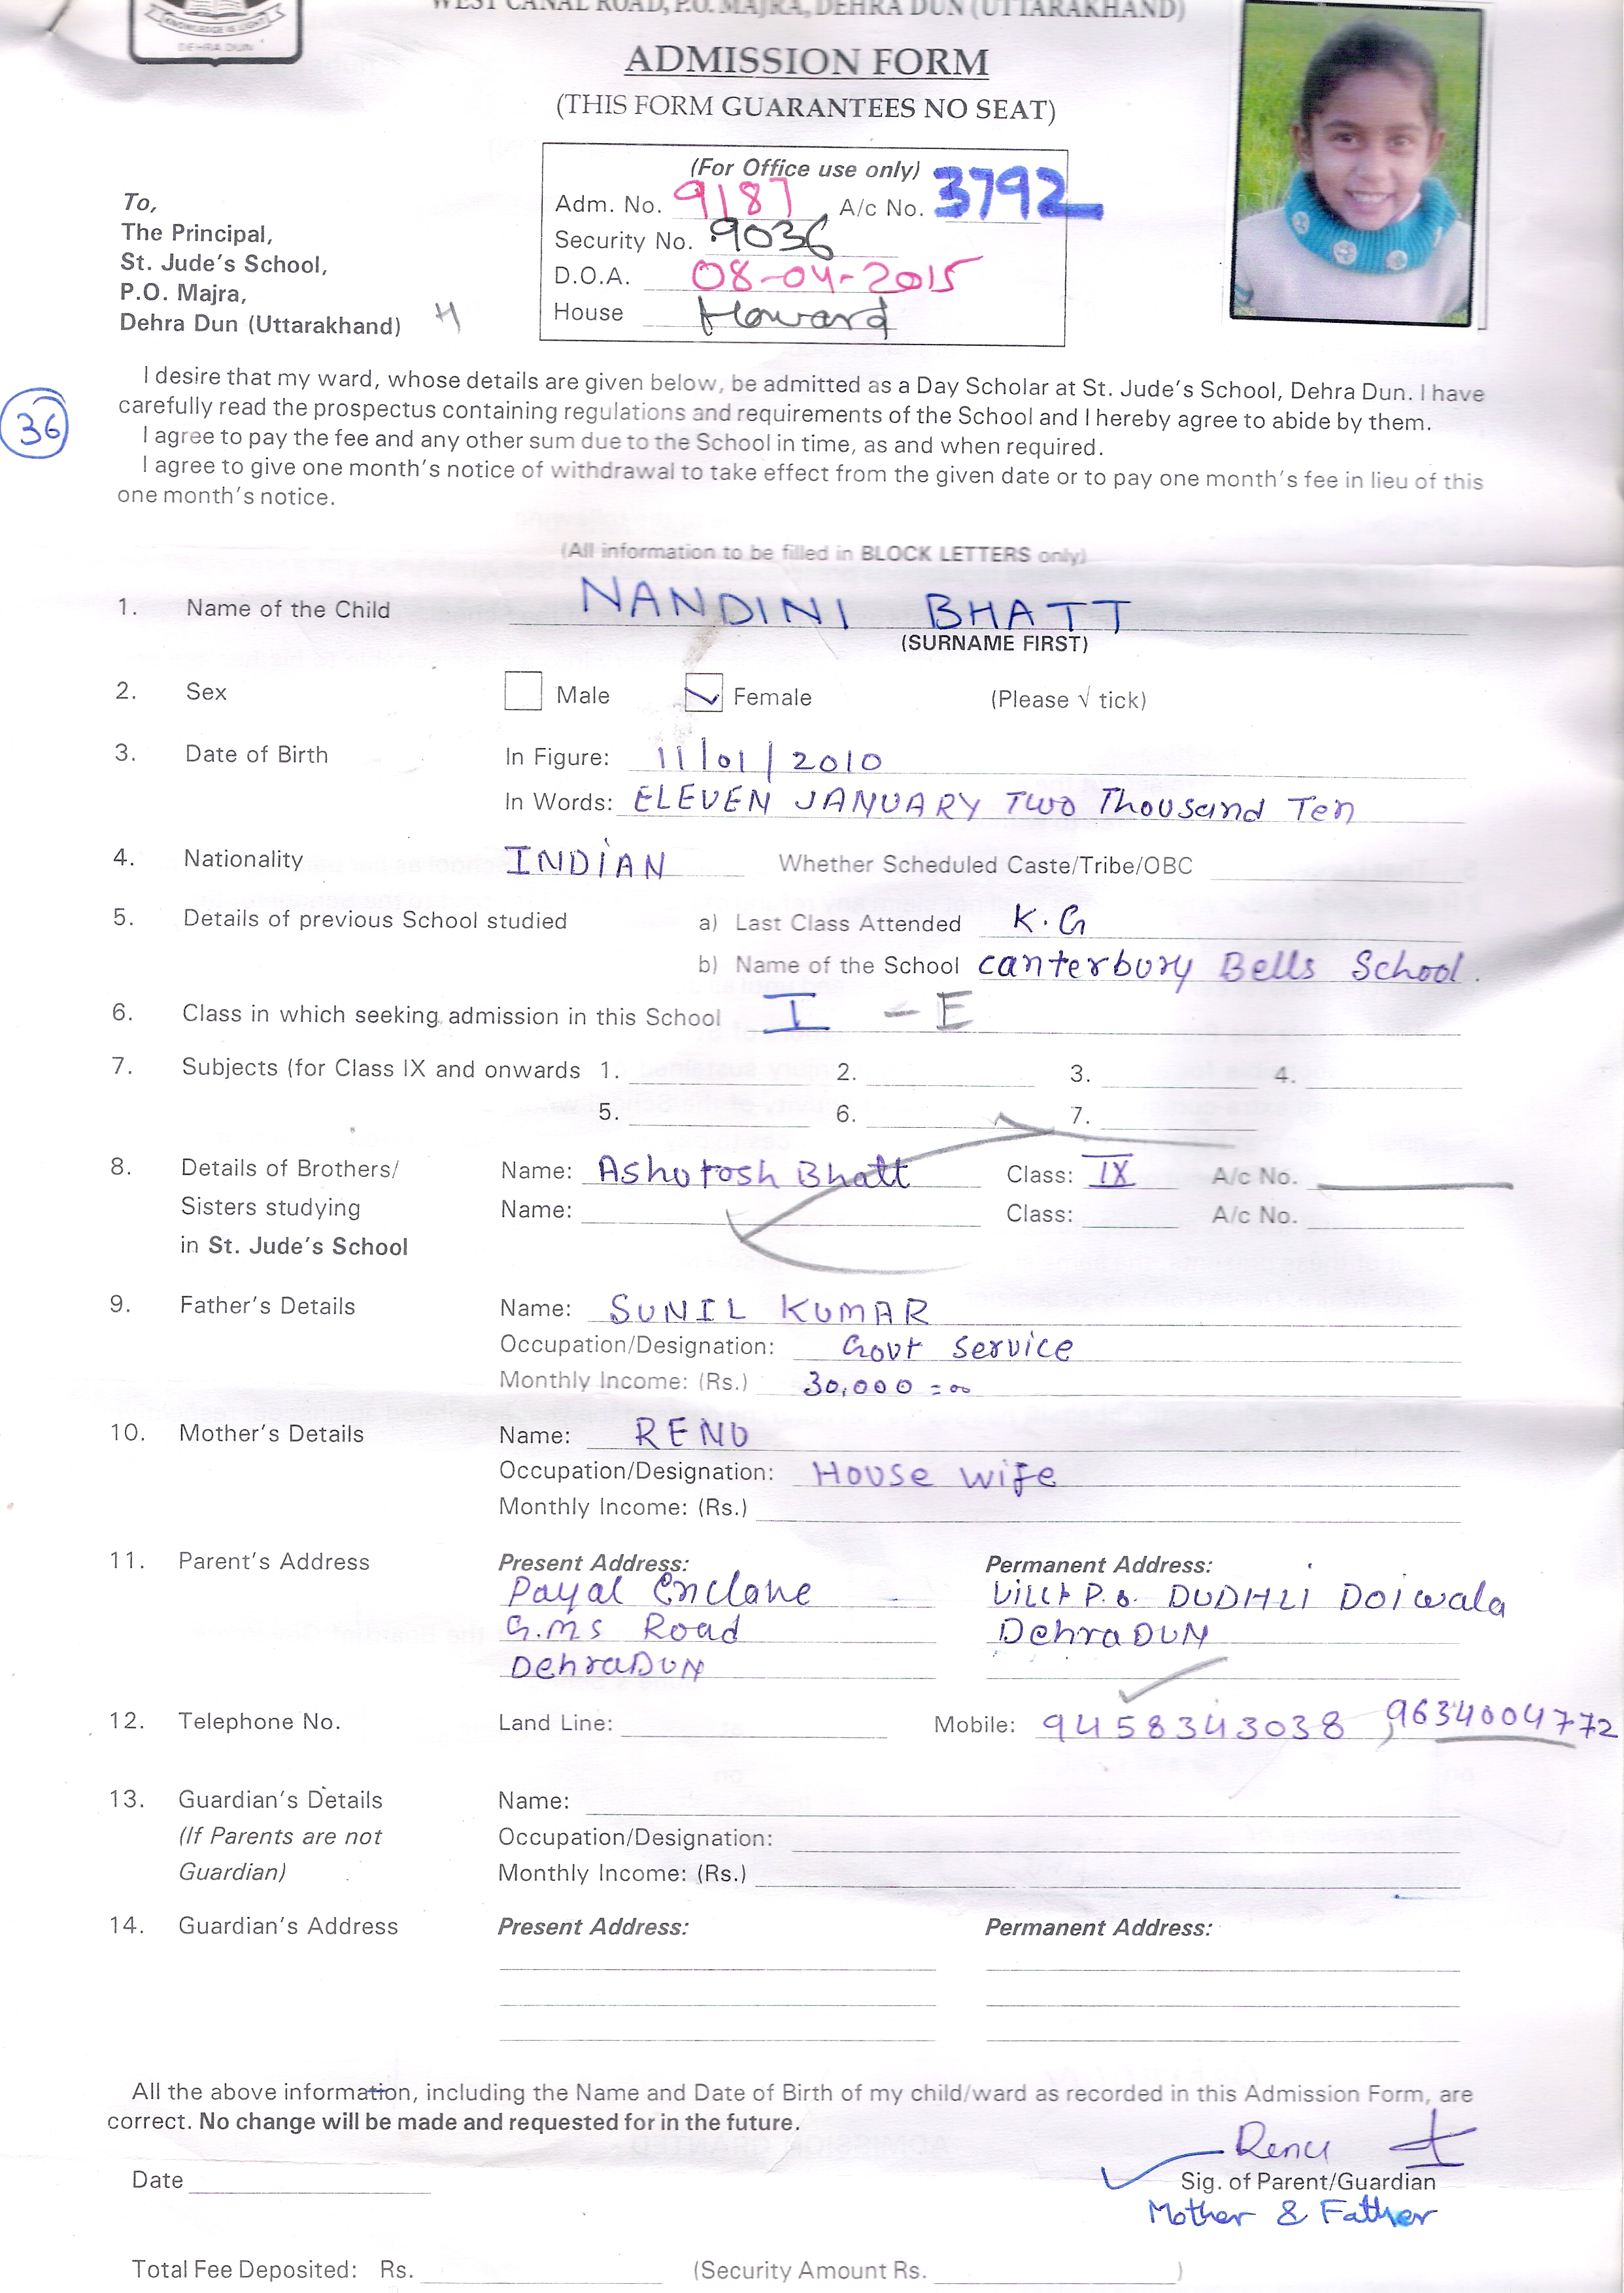 KNOWLEDGE IS LIGHT
DEHRA DUN
WEST CANAL ROAD, P.O. MAJRA, DEHRA DUN (UTTARAKHAND)
ADMISSION FORM
(THIS FORM GUARANTEES NO SEAT)
(For Office use only)
Adm. No. 9187 A/c No. 3792
Security No. 9036
D.O.A. 08-04-2015
House Howard
To,
The Principal,
St. Jude's School,
P.O. Majra,
Dehra Dun (Uttarakhand)
36
I desire that my ward, whose details are given below, be admitted as a Day Scholar at St. Jude's School, Dehra Dun. I have
carefully read the prospectus containing regulations and requirements of the School and I hereby agree to abide by them.
I agree to pay the fee and any other sum due to the School in time, as and when required.
I agree to give one month's notice of withdrawal to take effect from the given date or to pay one month's fee in lieu of this
one month's notice.
(All information to be filled in BLOCK LETTERS only)
1. Name of the Child NANDINI BHATT
(SURNAME FIRST)
2. Sex Male Female (Please √ tick)
3. Date of Birth In Figure: 11/01/2010
In Words: ELEVEN JANUARY TWO Thousand Ten
4. Nationality INDIAN Whether Scheduled Caste/Tribe/OBC
5. Details of previous School studied a) Last Class Attended K.G
b) Name of the School canterbury Bells School.
6. Class in which seeking admission in this School I - E
7. Subjects (for Class IX and onwards 1. 2. 3. 4.
5. 6. 7.
8. Details of Brothers/ Name: Ashutosh Bhatt Class: IX A/c No.
Sisters studying Name: Class: A/c No.
in St. Jude's School
9. Father's Details Name: SUNIL KUMAR
Occupation/Designation: Govt Service
Monthly Income: (Rs.) 30,000=00
10. Mother's Details Name: RENU
Occupation/Designation: House wife
Monthly Income: (Rs.)
11. Parent's Address Present Address: Permanent Address:
Payal Enclave Vill+ P.o. DUDHLI Doiwala
G.MS Road DehraDUN
DehraDUN
12. Telephone No. Land Line: Mobile: 9458343038, 9634004772
13. Guardian's Details Name:
(If Parents are not Occupation/Designation:
Guardian) Monthly Income: (Rs.)
14. Guardian's Address Present Address: Permanent Address:
All the above information, including the Name and Date of Birth of my child/ward as recorded in this Admission Form, are
correct. No change will be made and requested for in the future.
Renu
Date Sig. of Parent/Guardian
Mother & Father
Total Fee Deposited: Rs. (Security Amount Rs. )